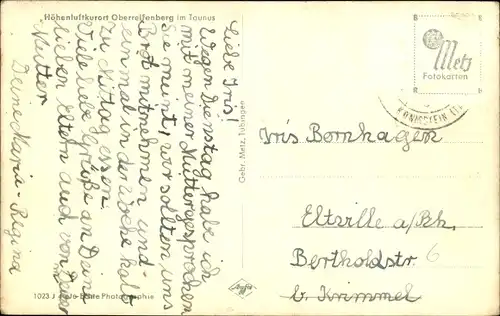 Höhenluftkurort Oberreifenberg im Taunus
Liebe Iris!
Wegen Dienstag habe ich
mit meiner Mutter gesprochen
Sie meint, wir sollten uns
Brot mitnehmen und
einmal in der Woche kalt
zu Mittag essen.
Viele liebe Grüße an Deine
lieben Eltern auch von
Mutter
Deine Maria-Regina
1023 J Echte Photographie
Gebr. Metz, Tübingen
Metz
Fotokarten
KÖNIGSTEIN
Iris Bornhagen
Eltville a/Rh.
Bertholdstr. 6
b. Krimmel
Agfa